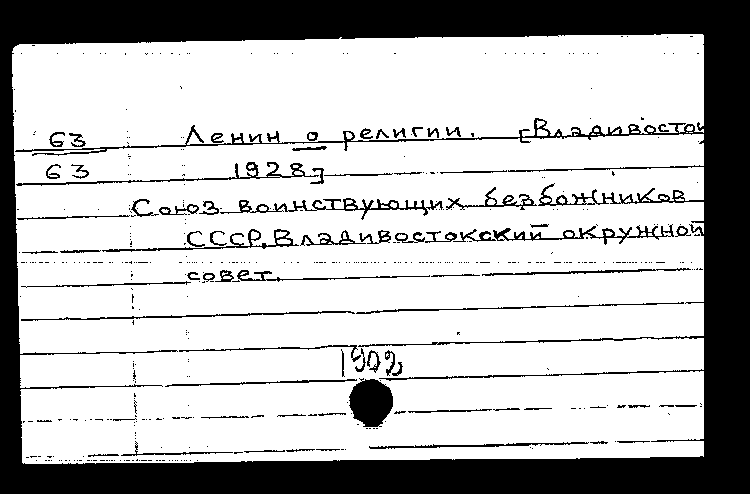 63 Ленин о религии. [Владивосток
63 1928]
Союз воинствующих безбожников
СССР, Владивостокский окружной
совет.
1902